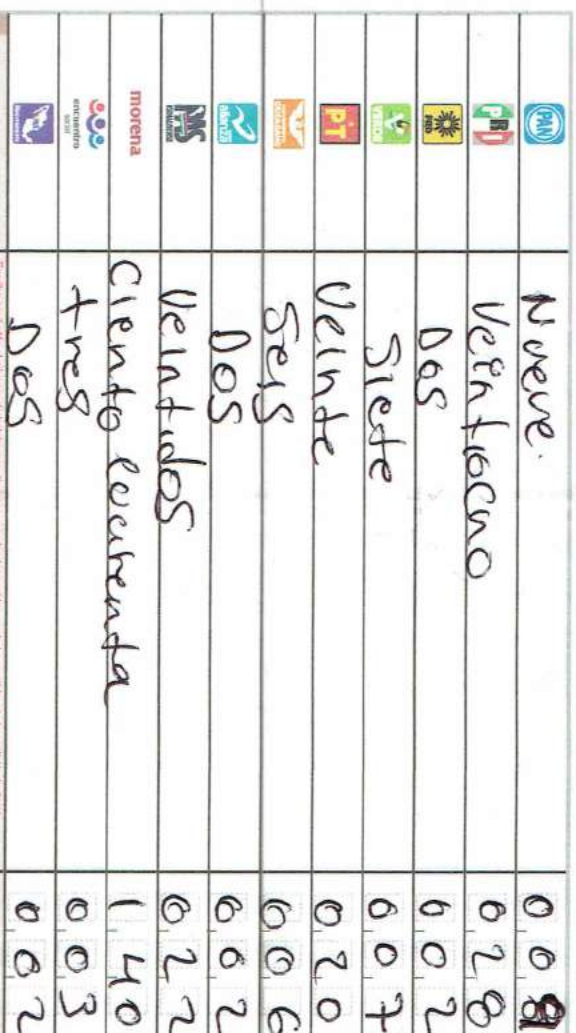 PAN Nueve. 00
PRI Veintiocho 028
PRD Dos 002
VERDE Siete 007
PT Veinte 020
Seis 006
alianza Dos 002
MÁS Veintidos 022
morena Ciento cuarenta 140
encuentro social tres 003
Dos 002